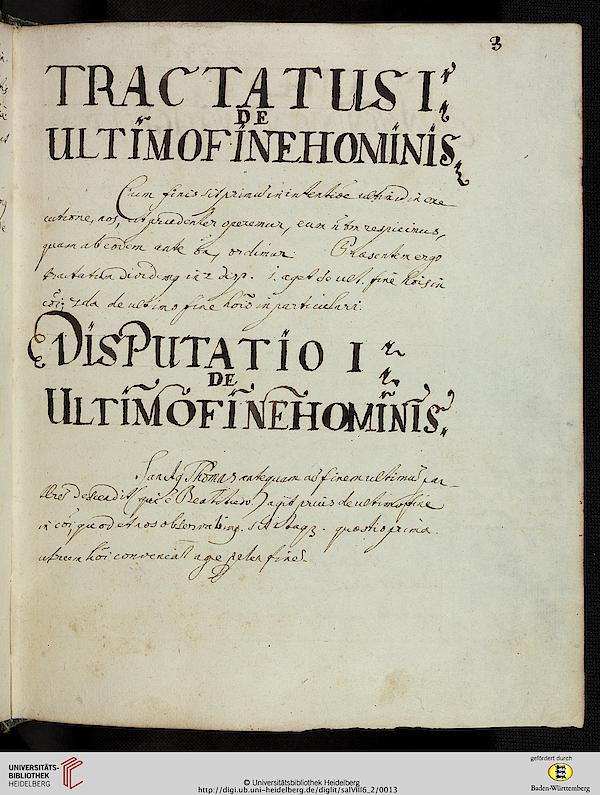 3
TRACTATUS I
DE
ULTIMO FINE HOMINIS
Cum finis sit primus in intentione ultimus in exe
cutione, nos, ut prudenter operemur, eum
quam ab eodem ante ordimur. Praesentem ergo
tractatum in 2 disp. 1. aget de ult. fine hois in
coi; 2da de ultimo fine hois in particulari.
DISPUTATIO I
DE
ULTIMO FINE HOMINIS
Thomas antequam ad finem ultimum par-
descendit (qui e Beatitudo) agit prius de ultimo fine
in coi, quod et nos observabimq. quaestio prima
utrum hoi conveniat agere propter finem
UNIVERSITÄTS-
BIBLIOTHEK
HEIDELBERG
© Universitätsbibliothek Heidelberg
http://digi.ub.uni-heidelberg.de/diglit/salVIII6_2/0013
gefördert durch
Baden-Württemberg